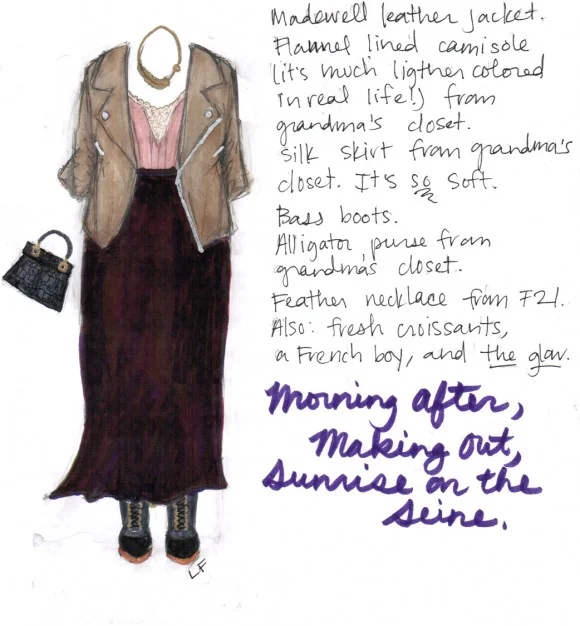 Madewell leather jacket.
Flannel lined camisole
(it's much ligther colored
in real life!) from
grandma's closet.
silk skirt from grandma's
closet. It's so soft.
Bass boots.
Alligator purse from
grandma's closet.
Feather necklace from F21.
Also: fresh croissants,
a French boy, and the glow.
Morning after,
Making out,
Sunrise on the
Seine.
LF